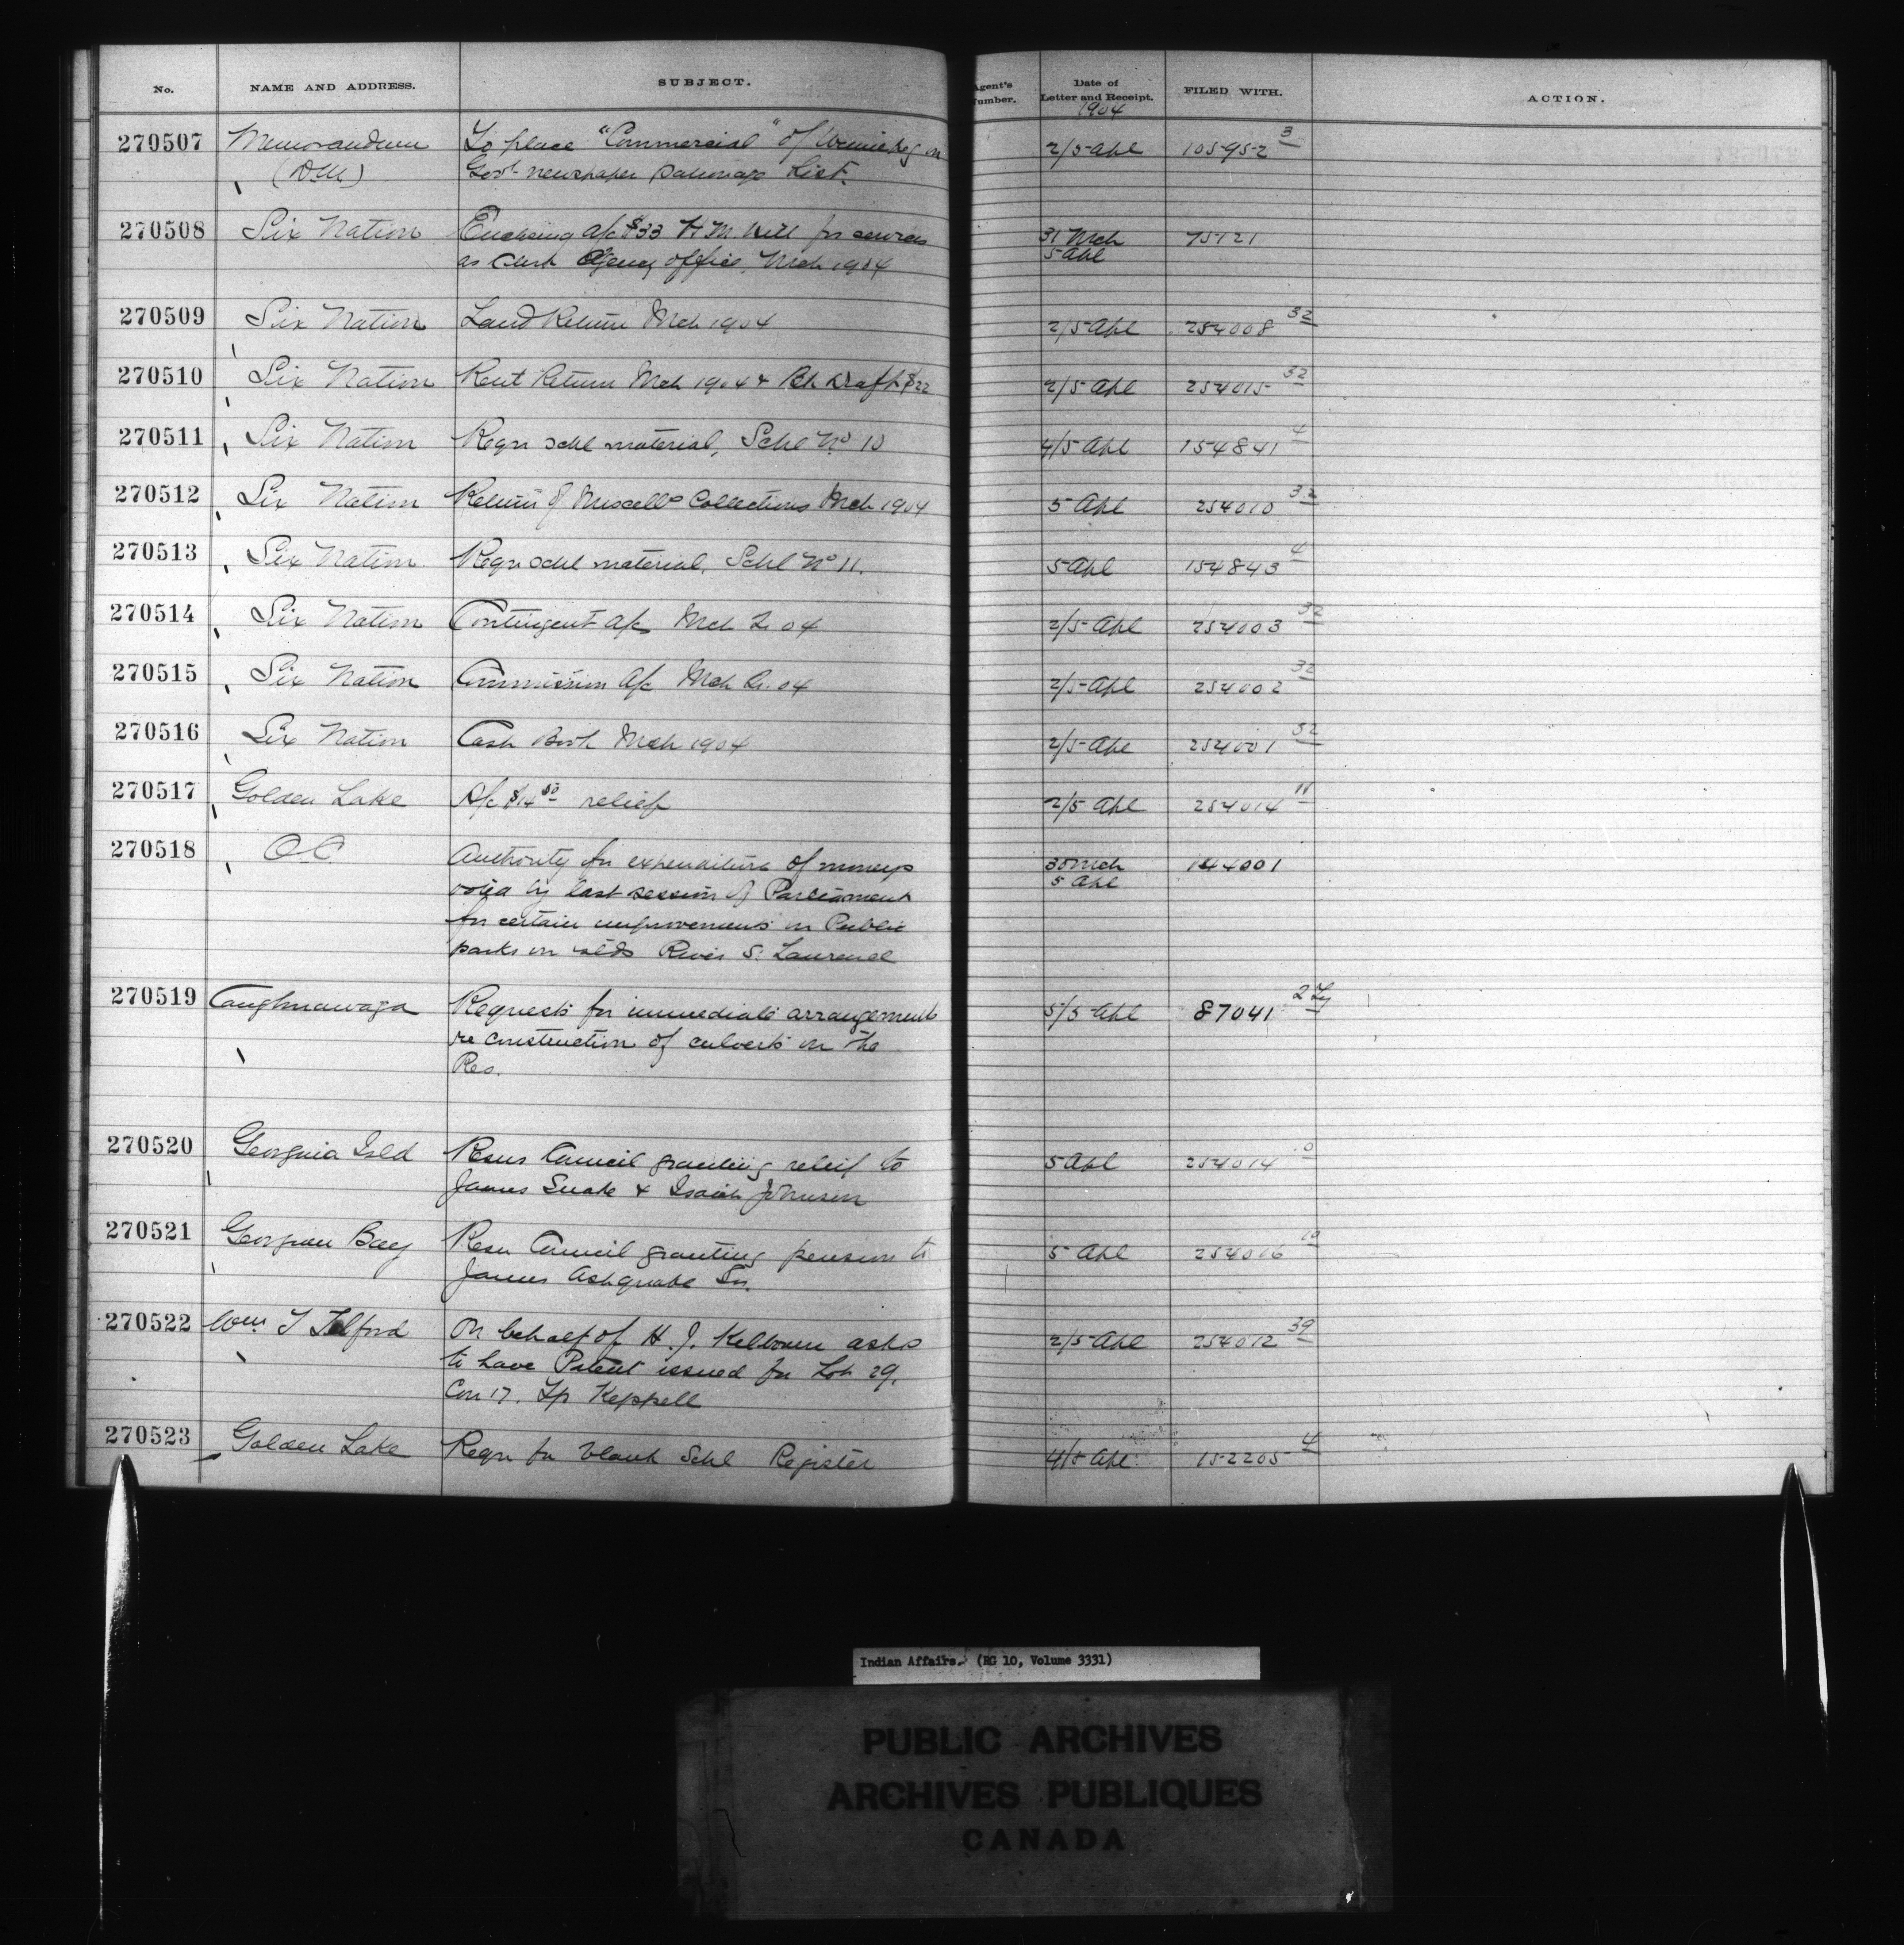 No. NAME AND ADDRESS. SUBJECT. Agent's Number. Date of Letter and Receipt. 1904 FILED WITH. ACTION.
270507 Memorandum To place "Commercial" of Winnipeg on 2/5 Apl 105952 3
(D.M.) Govt newspaper patronage List.
270508 Six Nation Enclosing a/c $33 H.M. Hill for services 31 Mch 75121
as Clerk Agency office, Mch 1904 5 Apl
270509 Six Nation Land Return Mch 1904 2/5 Apl 254008 32
270510 Six Nation Rent Return Mch 1904 & Bk Draft $22 2/5 Apl 254015 32
270511 Six Nation Reqn schl material, Schl No 10 4/5 Apl 154841 4
270512 Six Nation Return of Miscells Collections Mch 1904 5 Apl 254010 32
270513 Six Nation Reqn schl material, Schl No 11. 5 Apl 154843 4
270514 Six Nation Contingent a/c Mch Qr 04 2/5 Apl 254003 32
270515 Six Nation Commission a/c Mch Qr. 04 2/5 Apl 254002 32
270516 Six Nation Cash Book Mch 1904 2/5 Apl 254001 32
270517 Golden Lake A/c $14 50 relief 2/5 Apl 254014 11
270518 O.C. Authority for expenditure of moneys 30 Mch 144001
voted by last session of Parliament 5 Apl
for certain improvements in Public
parks on islds River St. Lawrence
270519 Caughnawaga Requests for immediate arrangements 5/5 Apl 87041 2
re construction of culverts on the
Res.
270520 Georgina Isld Resns Council granting relief to 5 Apl 254014
James Snake & Isaiah Johnson
270521 Georgian Bay Resn Council granting pension to 5 Apl 254016 10
James Ashquabe Sr.
270522 Wm. T Telford On behalf of H. J. Kelbourn asks 2/5 Apl 254012 39
to have Patent issued for Lot 29.
Con 17. Tp Keppell
270523 Golden Lake Reqn for blank Schl Register 4/5 Apl 152205 4
Indian Affairs. (RG 10, Volume 3331)
PUBLIC ARCHIVES
ARCHIVES PUBLIQUES
CANADA